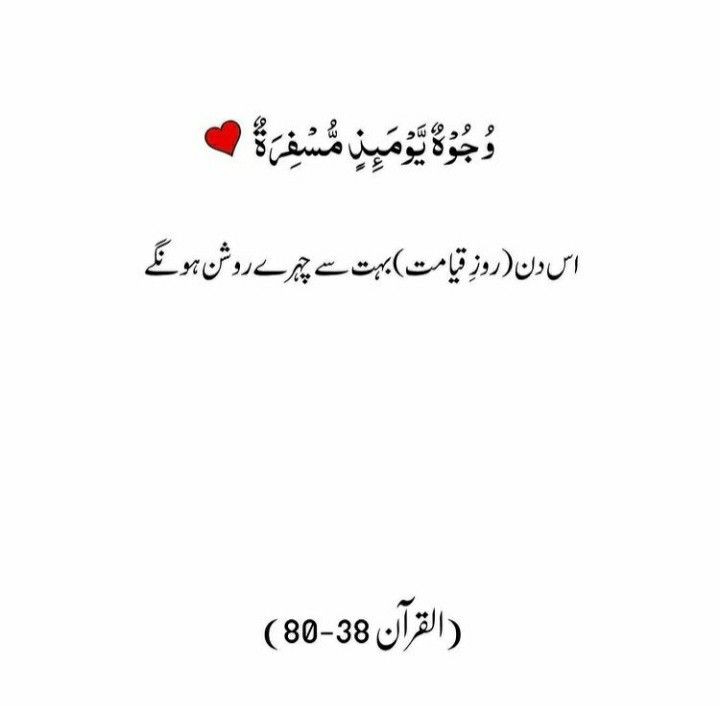 وُجُوْهٌ يَّوْمَئِذٍ مُّسْفِرَةٌ ❤️
اس دن (روزِ قیامت) بہت سے چہرے روشن ہونگے
(القرآن 38-80)